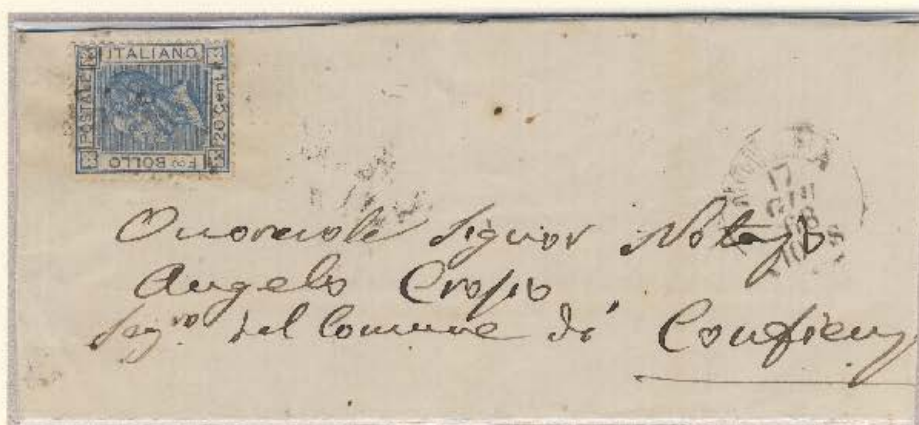 ITALIANO
POSTALE
20 Cent.
Fco BOLLO
17
GIU
68
10 S
Onorevole Signor Notajo
Angelo Crosio
Segro del Comune di Confienz